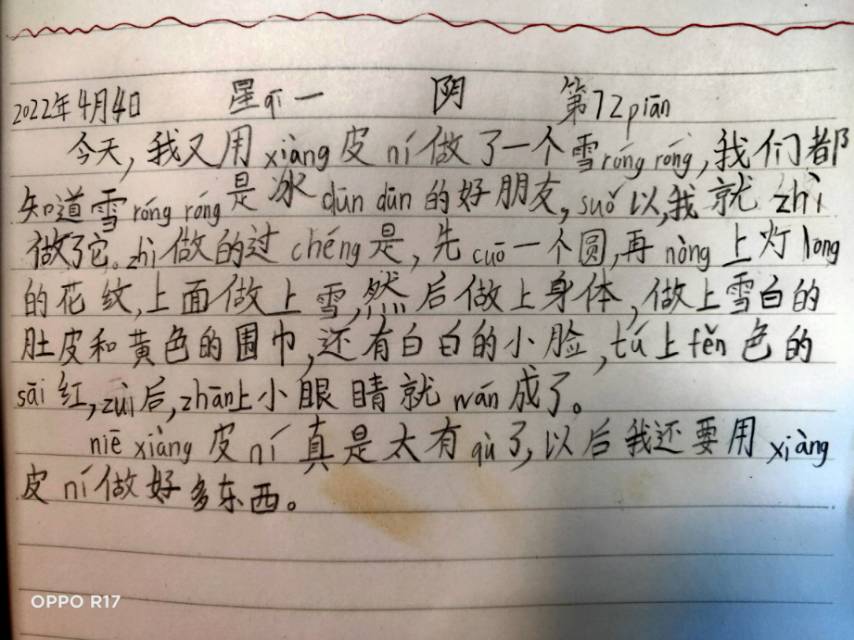 2022年4月4日 星qī一 阴 第72piān
今天,我又用xiàng皮ní做了一个雪róng róng,我们都
知道雪róng róng是冰dūn dūn的好朋友,suǒ以,我就zhì
做了它。zhì做的过chéng是,先cuō一个圆,再nòng上灯lóng
的花纹,上面做上雪,然后做上身体,做上雪白的
肚皮和黄色的围巾,还有白白的小脸,tú上fěn色的
sāi红,zuì后,zhān上小眼睛就wán成了。
niē xiàng皮ní真是太有qù了,以后我还要用xiàng
皮ní做好多东西。
OPPO R17